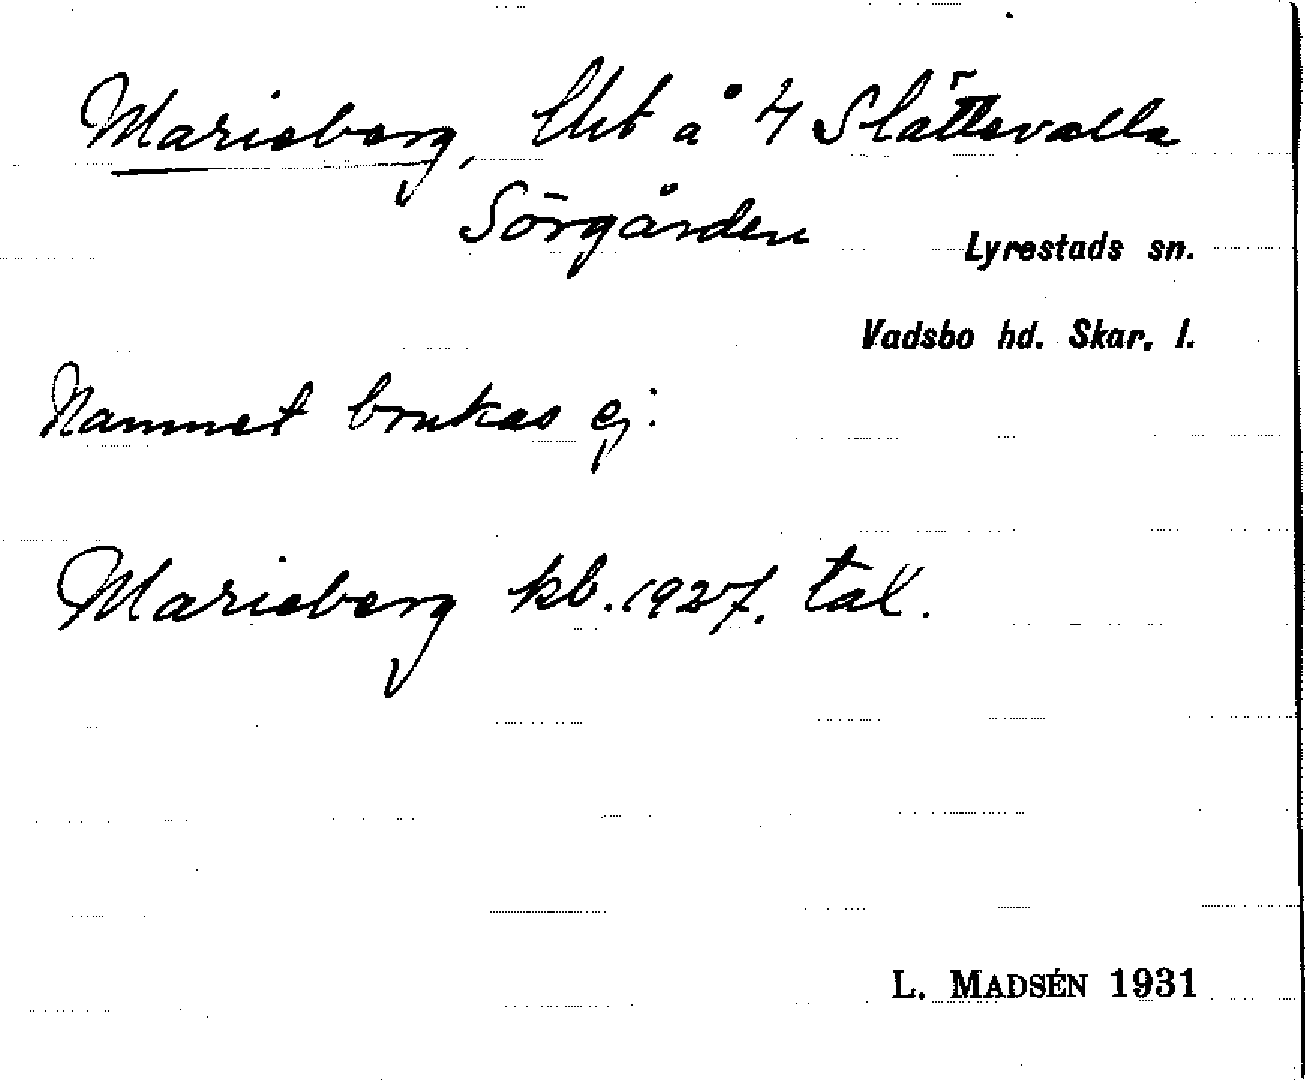 Marieberg, lht å 4 Slättevalla
Sörgården
Lyrestads sn.
Vadsbo hd. Skar. l.
Namnet brukas ej.
Marieberg kb. 1927. tal.
L. MADSÉN 1931